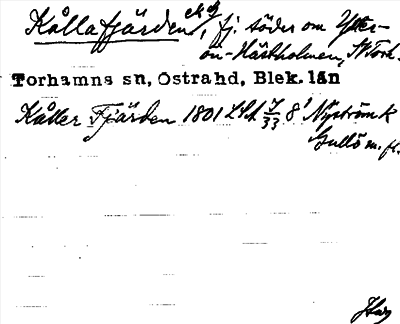 Kållafjärden, fj. söder om Ytter-
ön-Hästholmen, N Torh.
Torhamns sn, Östra hd, Blek. län
Kåller Fjärden 1801 LSA 7/33 8¹ Nyström k
Gullö m. fl.